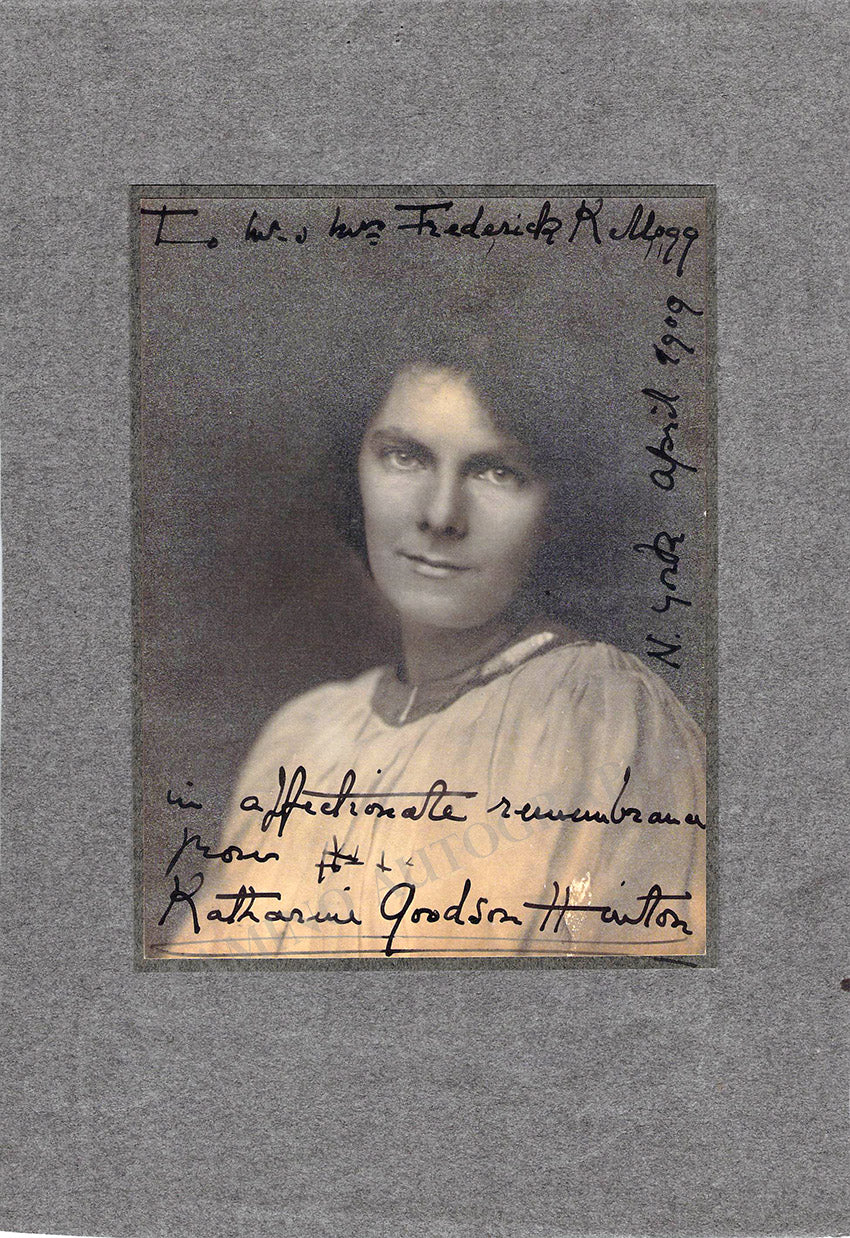 To Mr. & Mrs Frederick Kellogg
N. York April 1909
in affectionate remembrance
from
Katharine Goodson Hinton
TAMINO AUTOGRAPHS